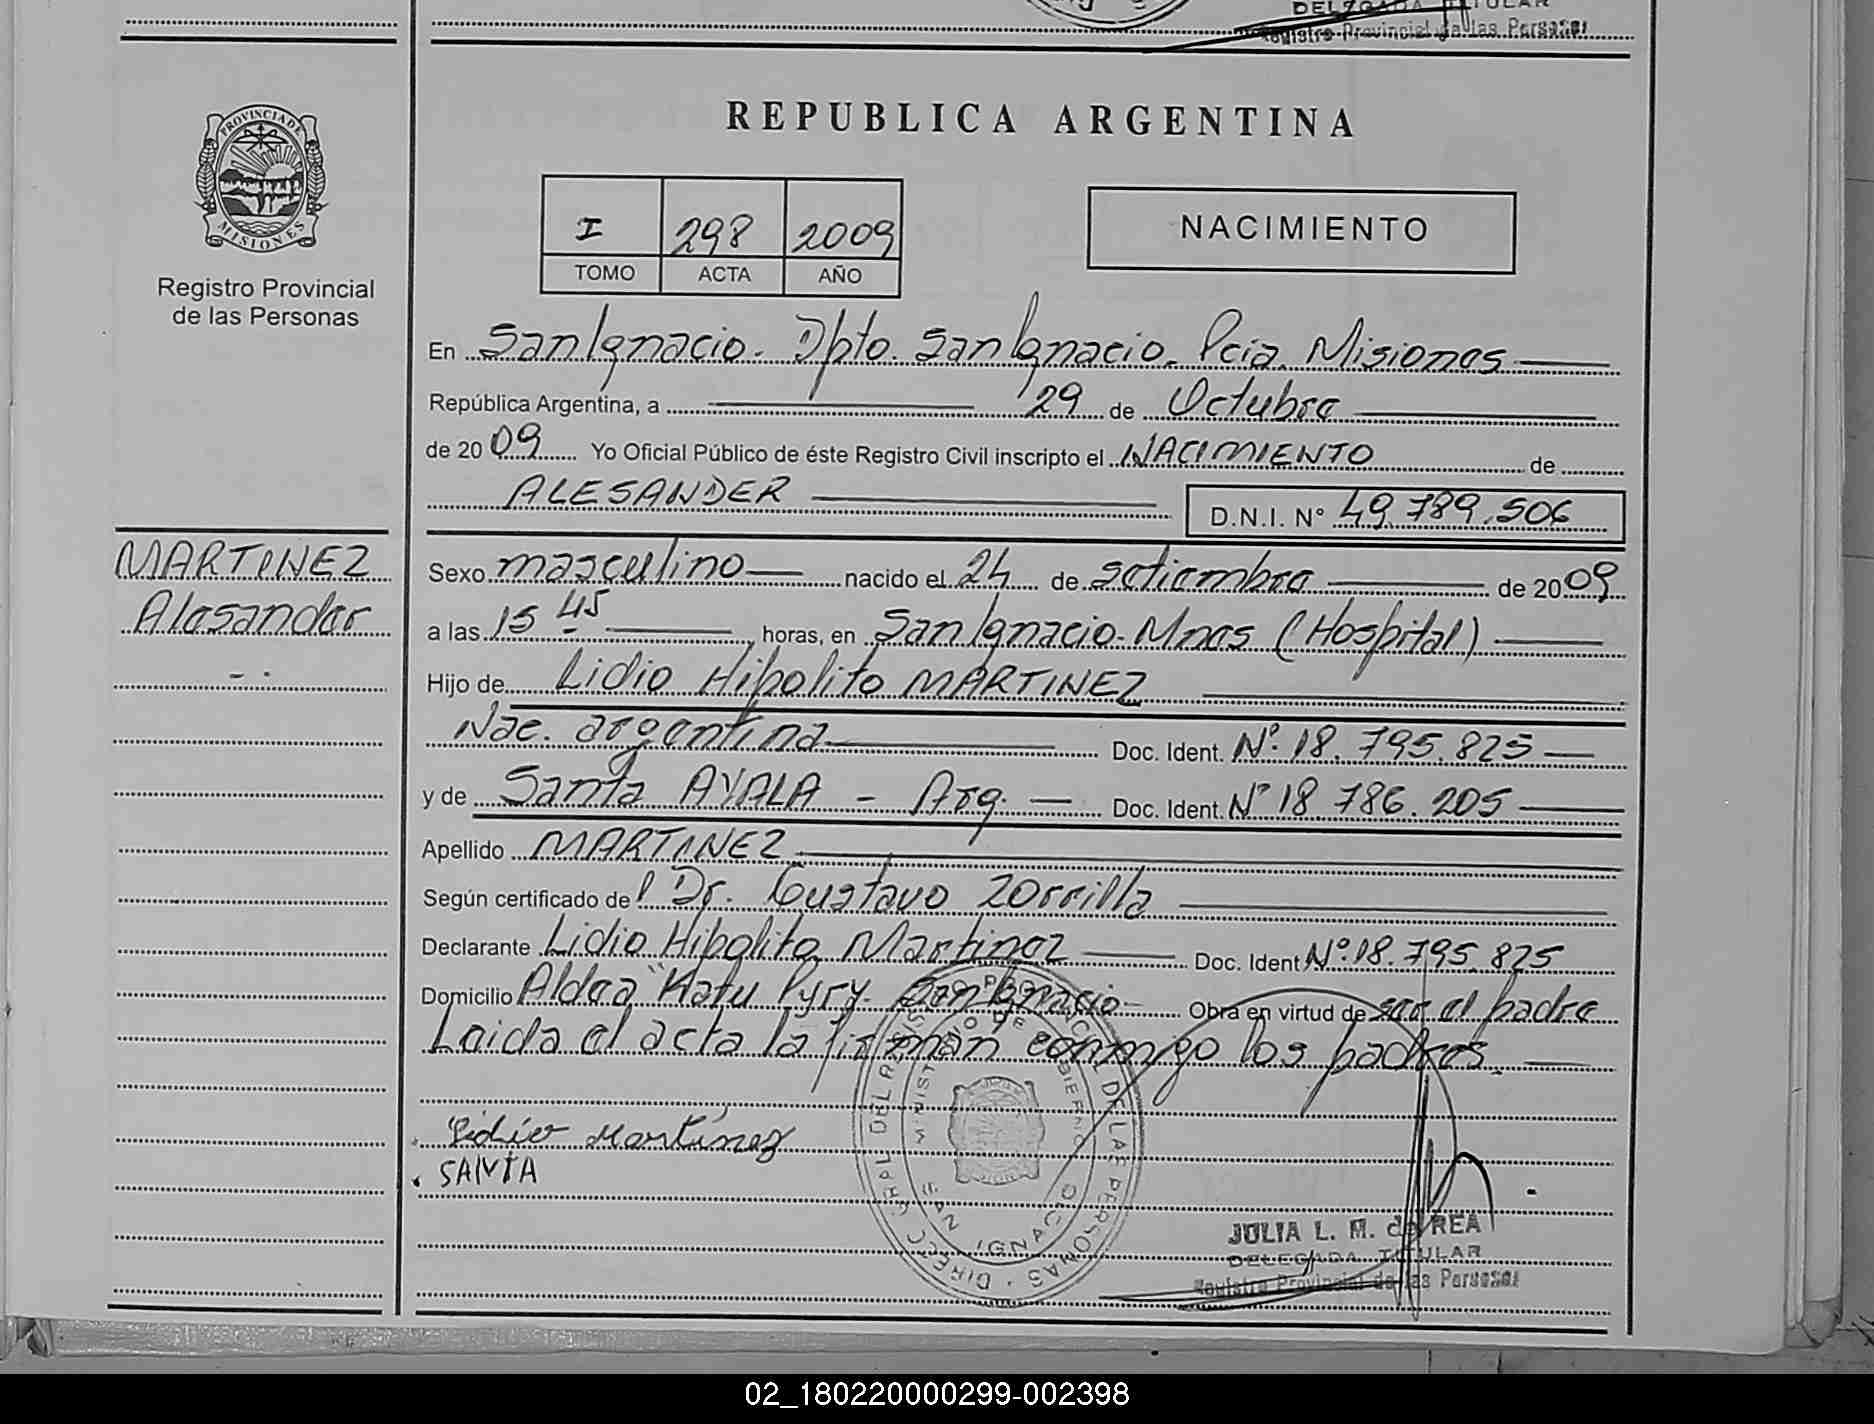 DELEGADA TITULAR
Registro Provincial de las Personas
PROVINCIA DE
MISIONES
Registro Provincial
de las Personas
REPUBLICA ARGENTINA
I 298 2009
TOMO ACTA AÑO
NACIMIENTO
En San Ignacio. Dpto. San Ignacio. Pcia. Misiones
República Argentina, a 29 de Octubre
de 2009 Yo Oficial Público de éste Registro Civil inscripto el NACIMIENTO de
ALESANDER D.N.I. N° 49.789.506
MARTINEZ
Alesander
Sexo masculino nacido el 24 de setiembre de 2009
a las 15 45 horas, en San Ignacio. Mnes (Hospital)
Hijo de Lidio Hipolito MARTINEZ
Nac. argentina Doc. Ident. N° 18.795.825
y de Santa AYALA - Arg. Doc. Ident. N° 18 786.205
Apellido MARTINEZ
Según certificado del Dr. Gustavo Zorrilla
Declarante Lidio Hipolito Martinez Doc. Ident N° 18.795.825
Domicilio Aldea "Katu Pyry. San Ignacio Obra en virtud de ser el padre
Leida el acta la firman conmigo los padres.
Lidio Martinez
. SANTA
MINISTERIO DE GOBIERNO
SAN IGNACIO
JULIA L. M. de REA
DELEGADA TITULAR
Registro Provincial de las Personas
02_180220000299-002398